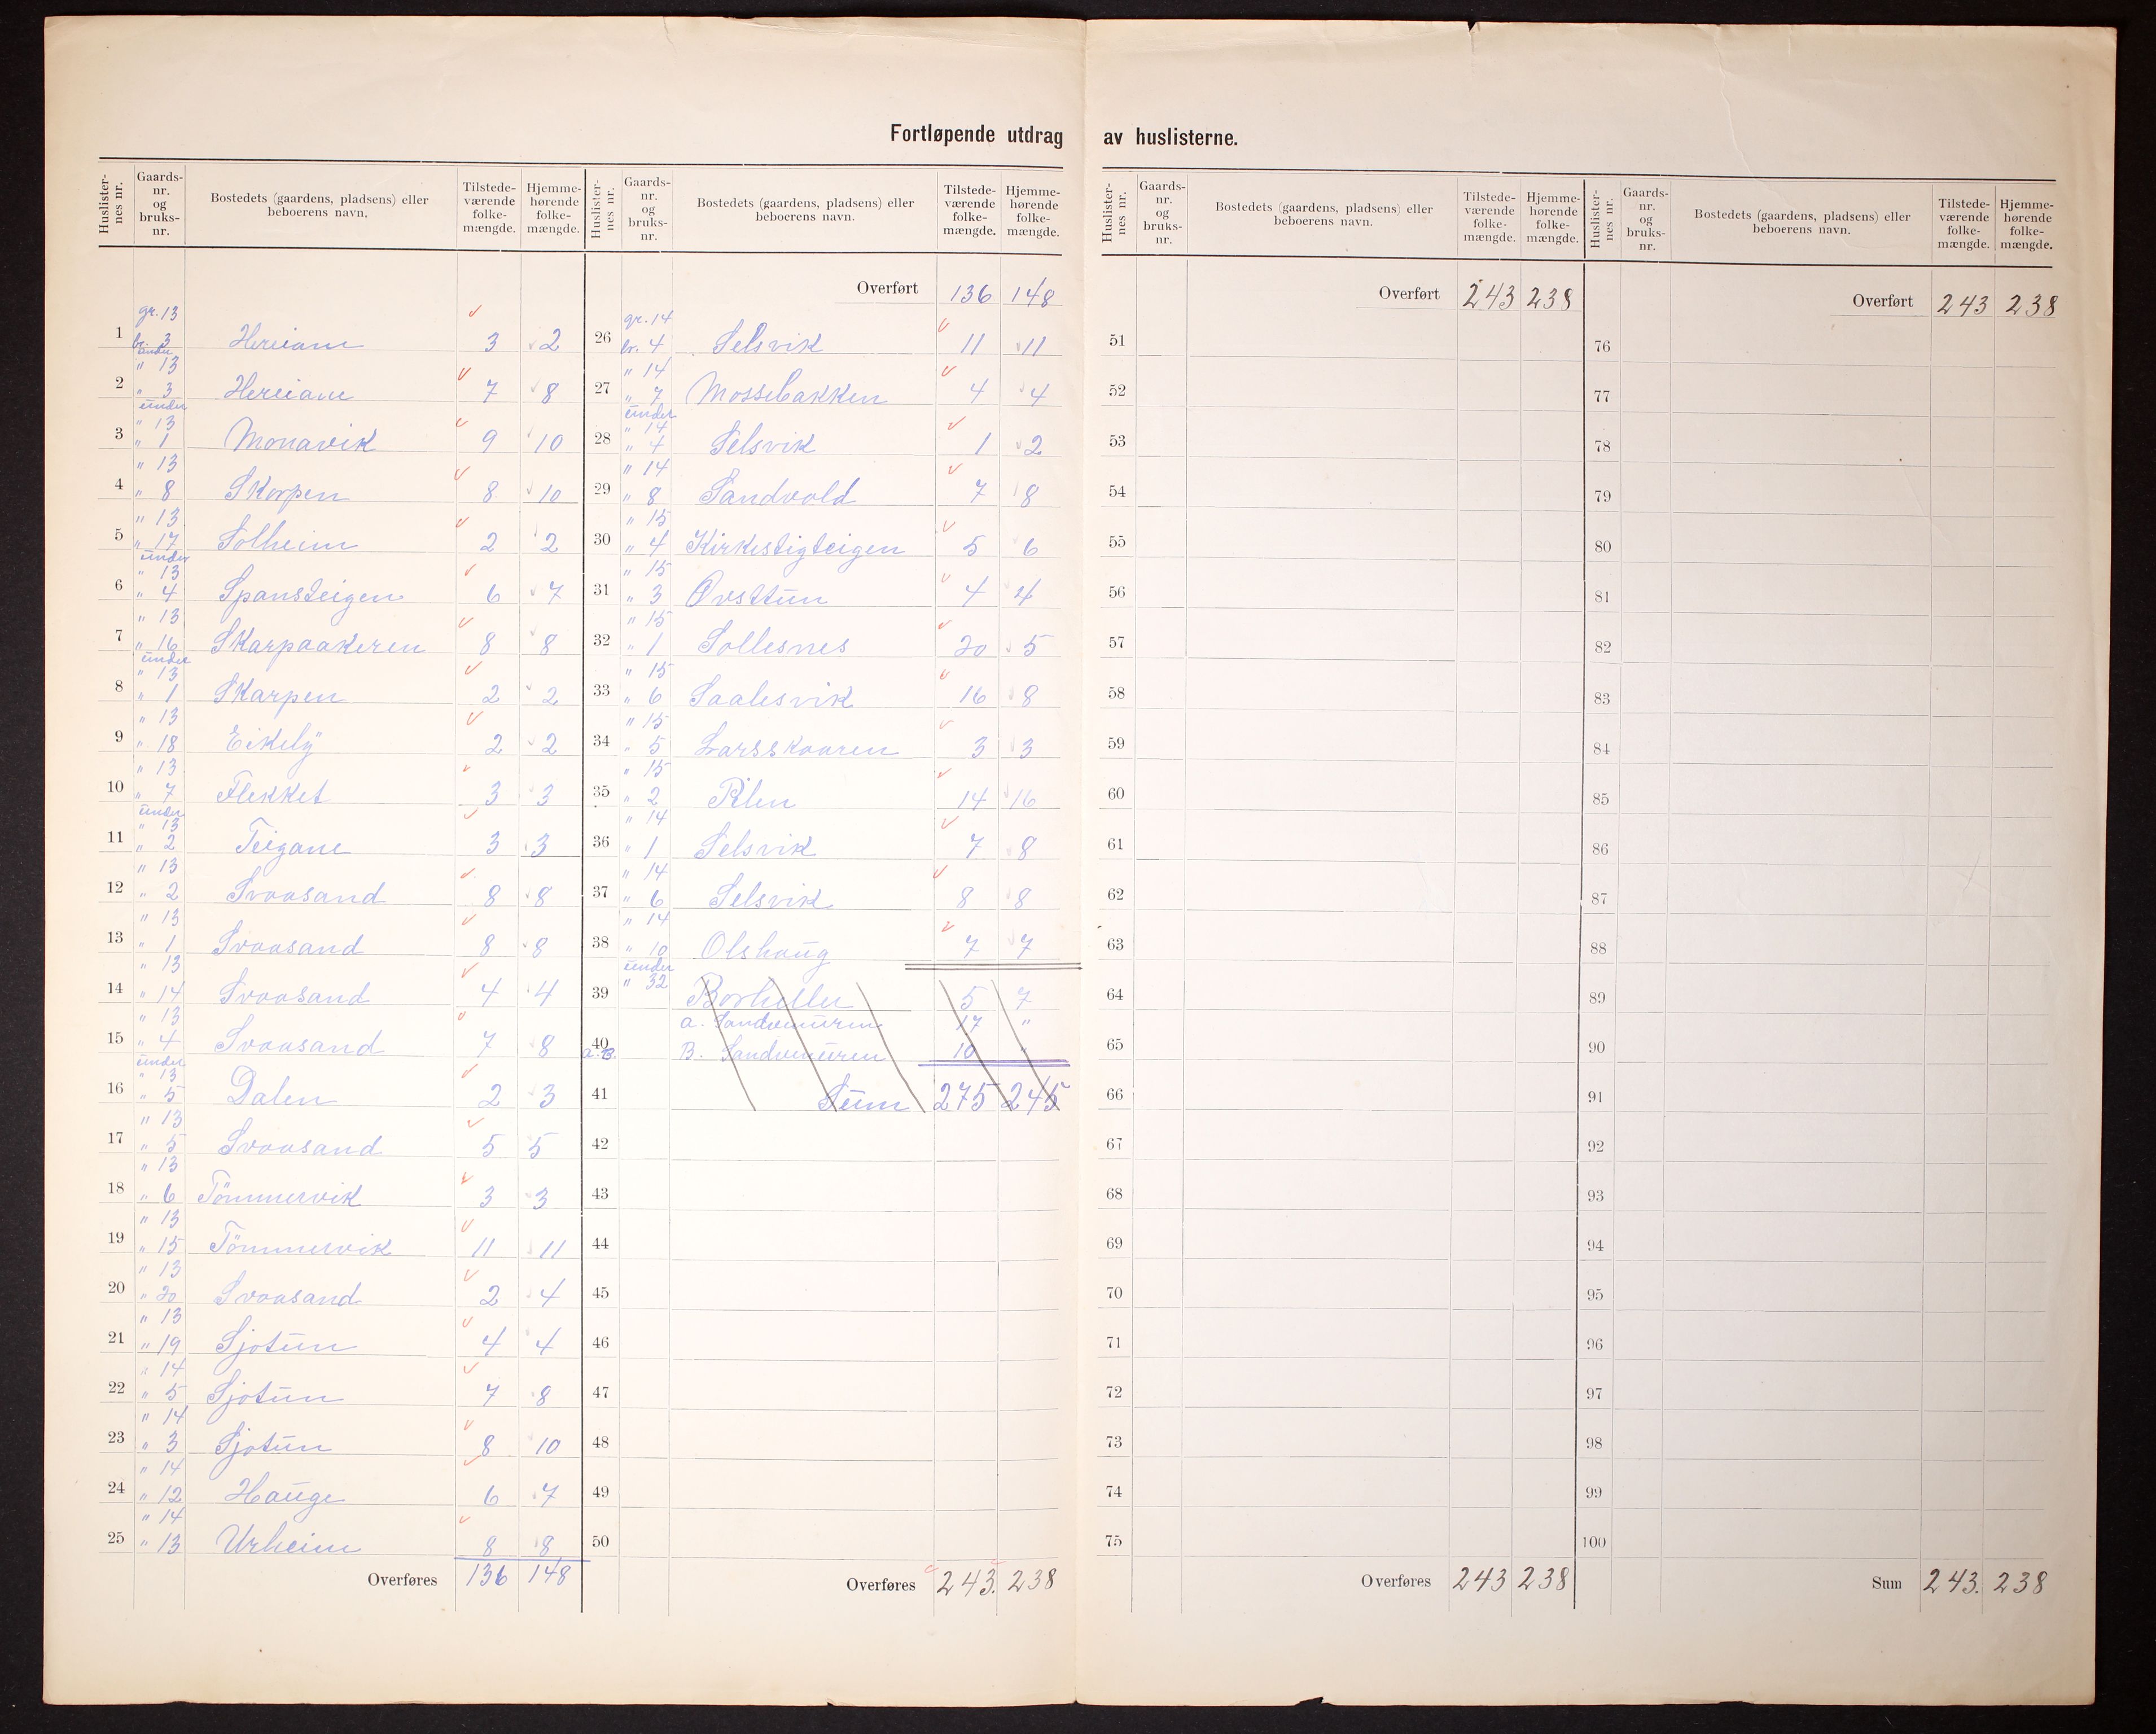 Fortløpende utdrag av huslisterne.
Huslister-nes nr. | Gaards-nr. og bruks-nr. | Bostedets (gaardens, pladsens) eller beboerens navn. | Tilstede-værende folke-mængde. | Hjemme-hørende folke-mængde.
gr. 13
1 br. 3 Hereiane 3 2
under
" 13
2 " 3 Hereiane 7 8
under
" 13
3 " 1 Monavik 9 10
" 13
4 " 8 Skorpen 8 10
" 13
5 " 17 Solheim 2 2
under
" 13
6 " 4 Spansteigen 6 7
" 13
7 " 16 Skarpaakeren 8 8
under
" 13
8 " 1 Skarpen 2 2
" 13
9 " 18 Eikely 2 2
" 13
10 " 7 Flekket 3 3
under
" 13
11 " 2 Teigane 3 3
" 13
12 " 2 Svaasand 8 8
" 13
13 " 1 Svaasand 8 8
" 13
14 " 14 Svaasand 4 4
" 13
15 " 4 Svaasand 7 8
under
" 13
16 " 5 Dalen 2 3
" 13
17 " 5 Svaasand 5 5
" 13
18 " 6 Tömmervik 3 3
" 13
19 " 15 Tömmervik 11 11
" 13
20 " 20 Svaasand 2 4
" 13
21 " 19 Sjotun 4 4
" 14
22 " 5 Sjotun 7 8
" 14
23 " 3 Sjotun 8 10
" 14
24 " 12 Hauge 6 7
" 14
25 " 13 Urheim 8 8
Overføres 136 148
Huslister-nes nr. | Gaards-nr. og bruks-nr. | Bostedets (gaardens, pladsens) eller beboerens navn. | Tilstede-værende folke-mængde. | Hjemme-hørende folke-mængde.
Overført 136 148
gr. 14
26 br. 4 Selsvik 11 11
" 14
27 " 7 Mossebakken 4 4
under
" 14
28 " 4 Selsvik 1 2
" 14
29 " 8 Sandvold 7 8
" 15
30 " 4 Kirkestigteigen 5 6
" 15
31 " 3 Øvsttun 4 4
" 15
32 " 1 Sollesnes 20 5
" 15
33 " 6 Saalesvik 16 8
" 15
34 " 5 Larsskaaren 3 3
" 15
35 " 2 Pilen 14 16
" 14
36 " 1 Selsvik 7 8
" 14
37 " 6 Selsvik 8 8
" 14
38 " 10 Olshaug 7 7
under
39 " 32 Borheller 5 7
a. Sandvenüren 17 "
40 a.B. B. Sandvenüren 10 "
41 Sum 275 245
42
43
44
45
46
47
48
49
50
Overføres 243. 238
Huslister-nes nr. | Gaards-nr. og bruks-nr. | Bostedets (gaardens, pladsens) eller beboerens navn. | Tilstede-værende folke-mængde. | Hjemme-hørende folke-mængde.
Overført 243 238
51
52
53
54
55
56
57
58
59
60
61
62
63
64
65
66
67
68
69
70
71
72
73
74
75
Overføres 243 238
Huslister-nes nr. | Gaards-nr. og bruks-nr. | Bostedets (gaardens, pladsens) eller beboerens navn. | Tilstede-værende folke-mængde. | Hjemme-hørende folke-mængde.
Overført 243 238
76
77
78
79
80
81
82
83
84
85
86
87
88
89
90
91
92
93
94
95
96
97
98
99
100
Sum 243. 238